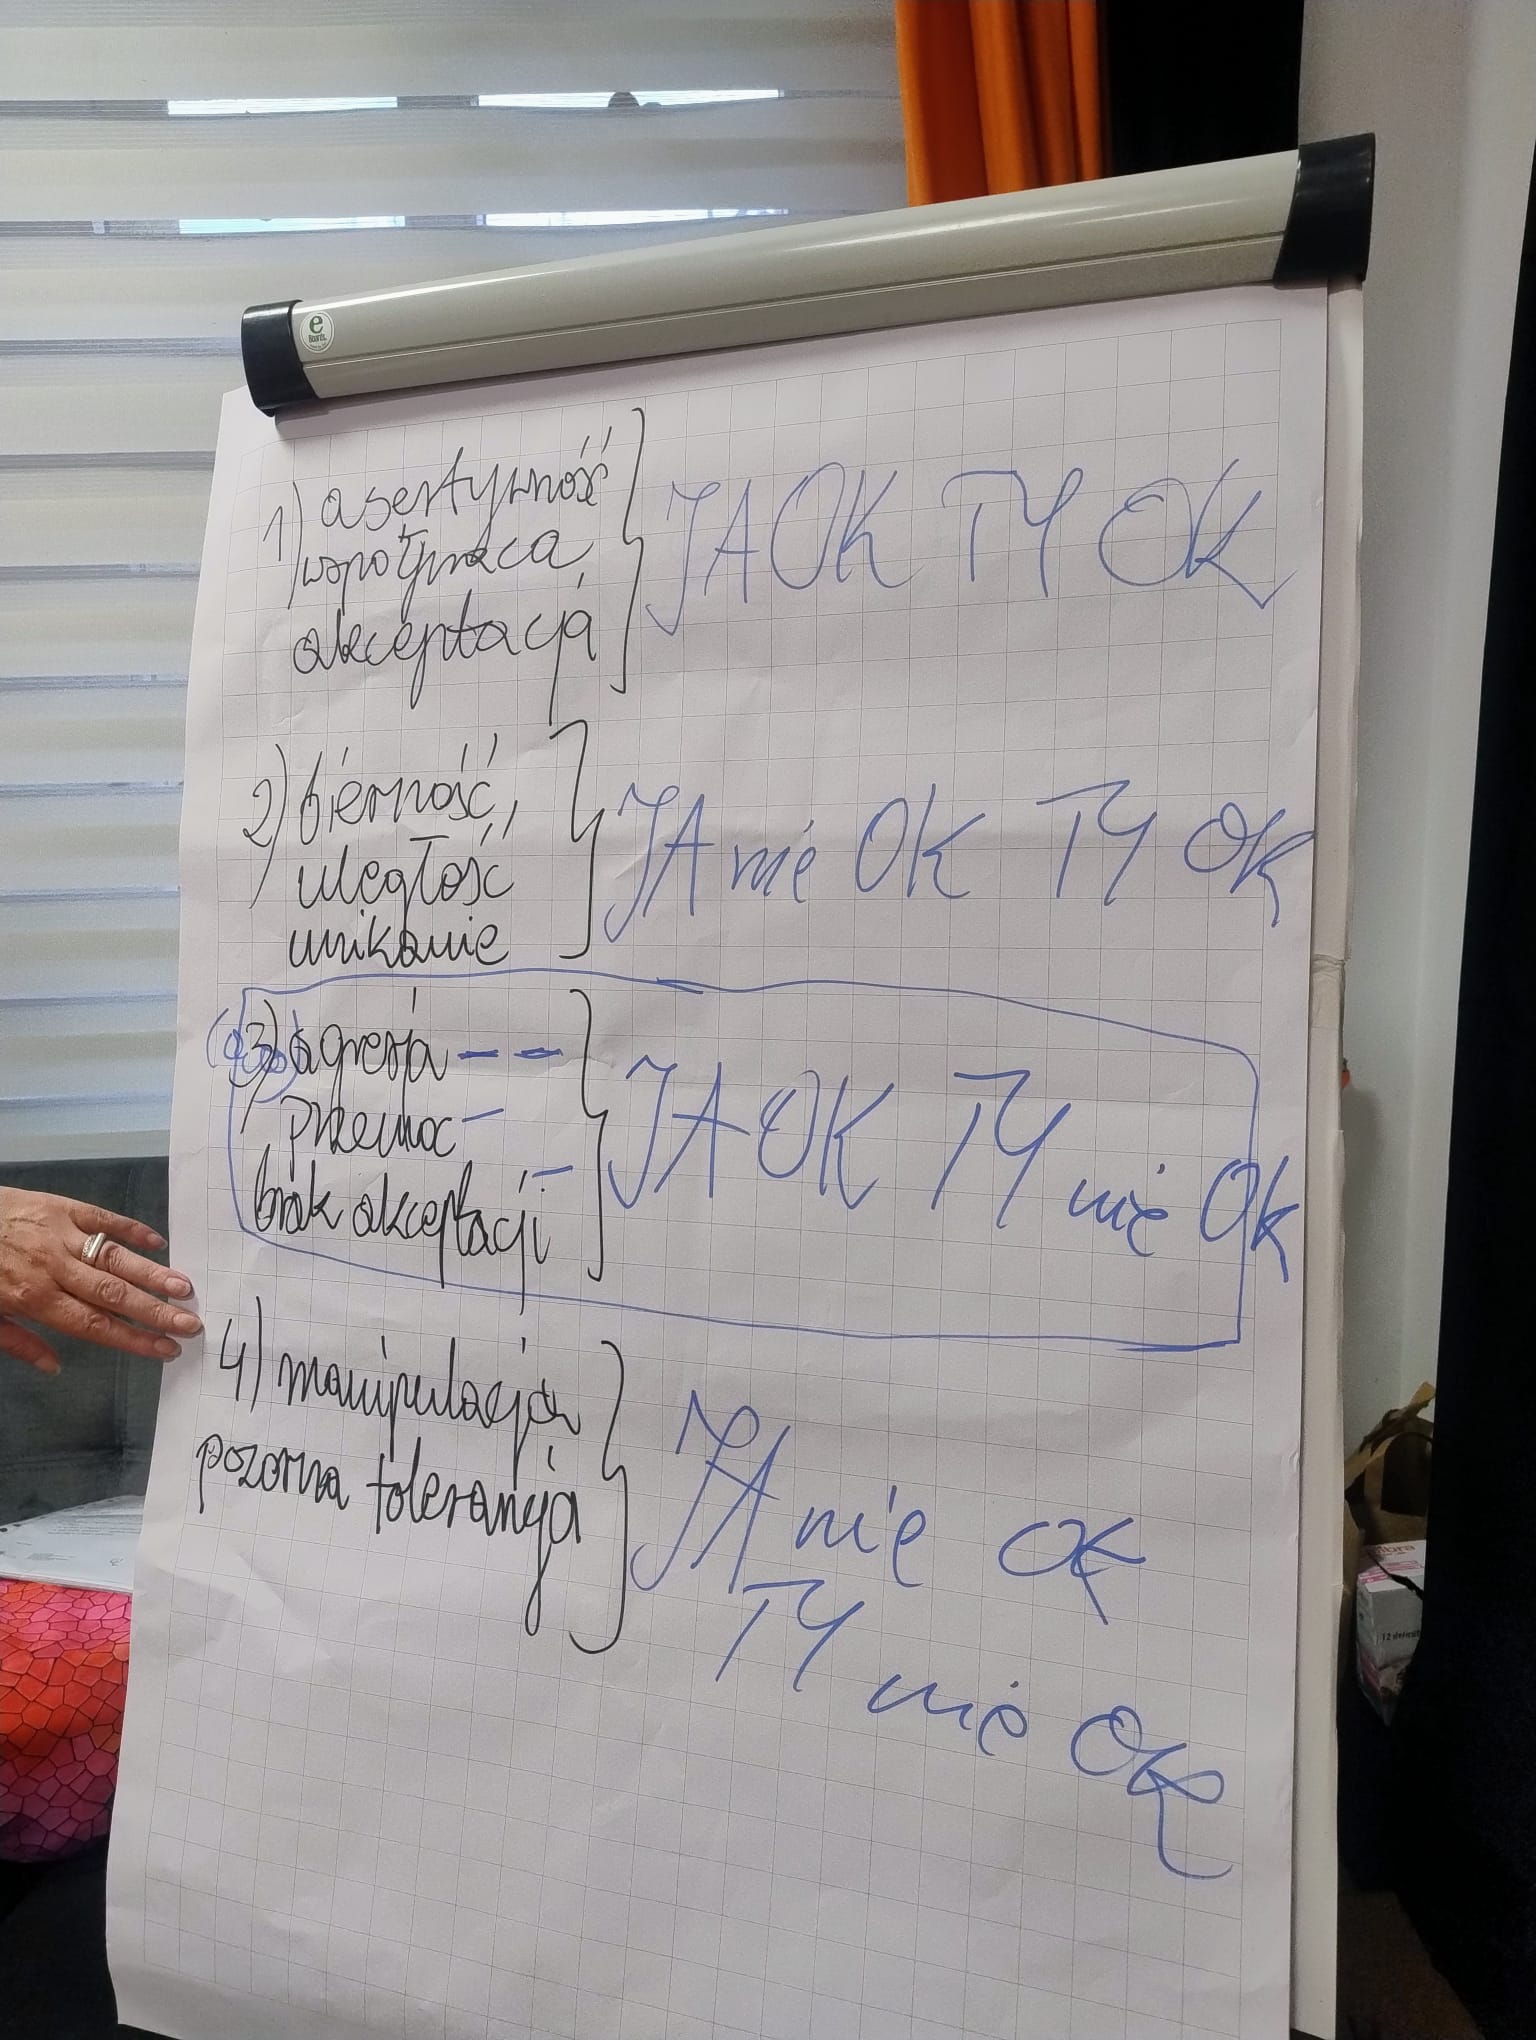 1) asertywność
współpraca,
akceptacja
JA OK TY OK
2) bierność,
uległość,
unikanie
JA nie OK TY OK
3) agresja – –
przemoc –
brak akceptacji –
JA OK TY nie OK
4) manipulacja
pozorna tolerancja
JA nie OK
TY nie OK